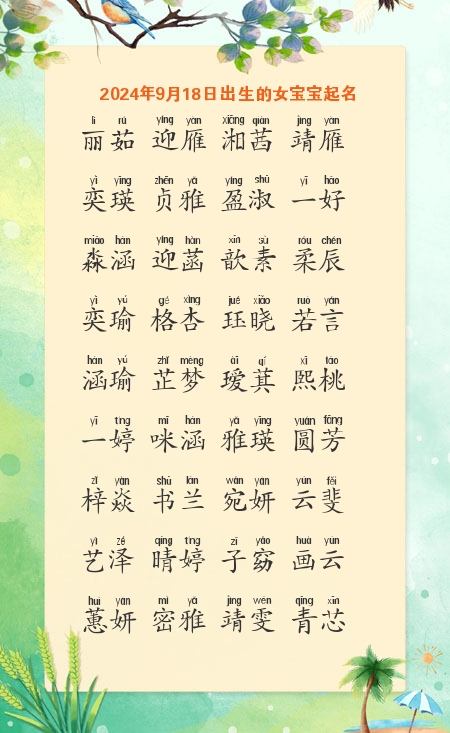 2024年9月18日出生的女宝宝起名
lì rú yíng yàn xiāng qiàn jìng yàn
丽茹 迎雁 湘茜 靖雁
yì yīng zhēn yǎ yíng shū yī hǎo
奕瑛 贞雅 盈淑 一好
miǎo hán yíng hàn xīn sù róu chén
淼涵 迎菡 歆素 柔辰
yì yú gé xìng jué xiǎo ruò yán
奕瑜 格杏 珏晓 若言
hán yú zhǐ mèng ài qí xī táo
涵瑜 芷梦 瑷萁 熙桃
yī tíng mī hán yǎ yīng yuán fāng
一婷 咪涵 雅瑛 圆芳
zǐ yàn shū lán wǎn yán yún fěi
梓焱 书兰 宛妍 云斐
yì zé qíng tíng zǐ yǎo huà yún
艺泽 晴婷 子窈 画云
huì yán mì yǎ jìng wén qīng xīn
蕙妍 密雅 靖雯 青芯